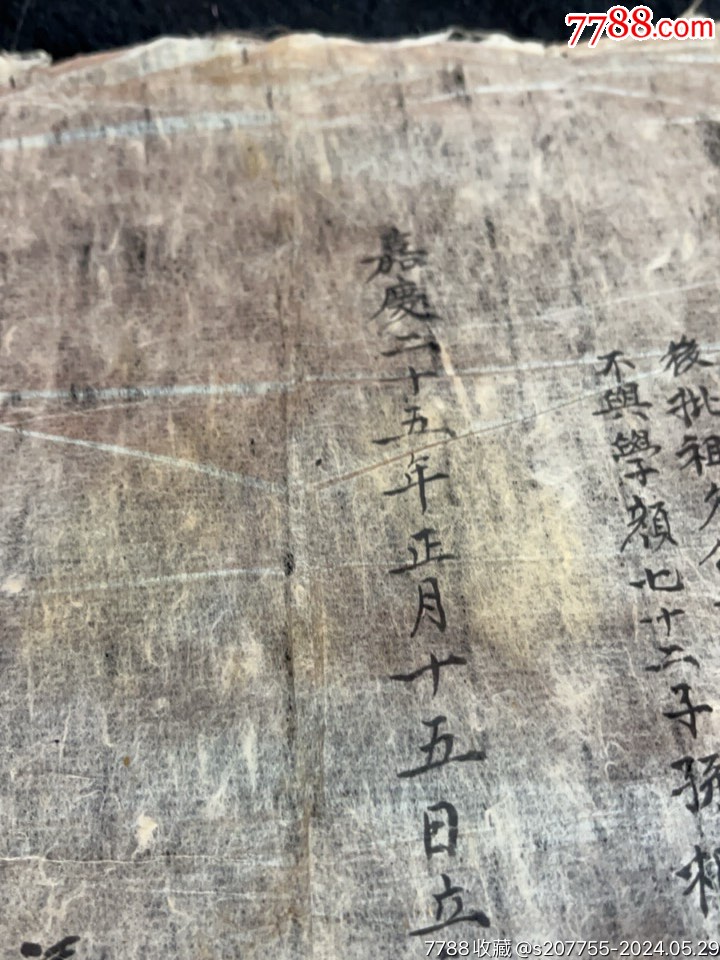 7788.com
後批祖父
不與學顏七十二子孫相
嘉慶二十五年正月十五日立
7788收藏@s207755-2024.05.29